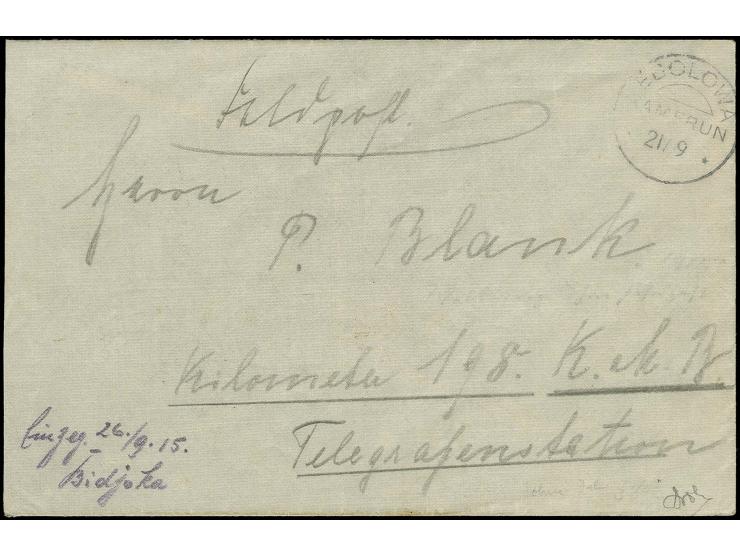 Feldpost.
EBOLOWA
KAMERUN
21/9
Herrn
P. Blank.
Kilometer 198. K. M. B.
Telegrafenstation
Eingeg. 26./9.15.
Bidjoka